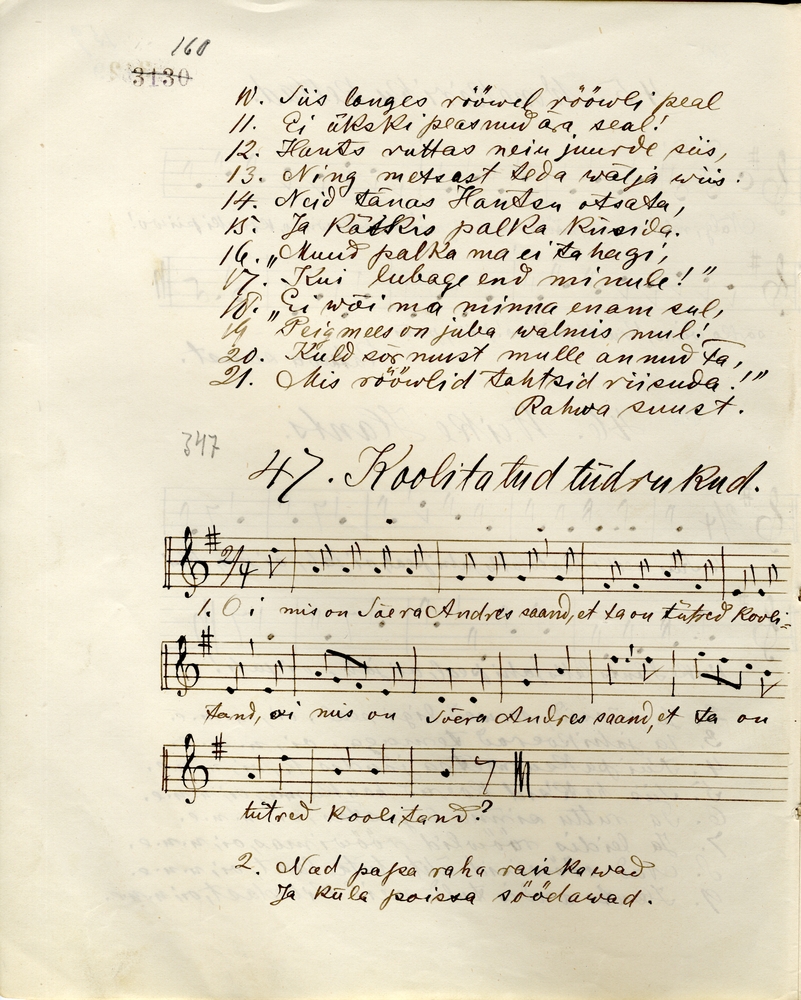 160
3130
10. Siis langes rööwel rööwli peal
11. Ei ükski peasnud ära seal!
12. Hants ruttas neiu juurde siis,
13. Ning metsast teda wälja wiis.
14. Neid tänas Hantsu otsata,
15. Ja käskis palka küsida.
16. „Muud palka ma ei tahagi,
17. Kui lubage end minule!"
18. „Ei wõi ma minna enam sul,
19 Peigmees on juba walmis mul!
20. Küld sõrmust mulle annud ta,
21. Mis rööwlid tahtsid riisuda!"
Rahwa suust.
347
47. Koolitatud tüdrukud.
2/4
1. Oi mis on Sõera Andres saand, et ta on tütred kooli=
tand, oi mis on Sõera Andres saand, et ta on
tütred koolitand?
2. Nad papa raha raiskawad
Ja küla poissa söödawad.